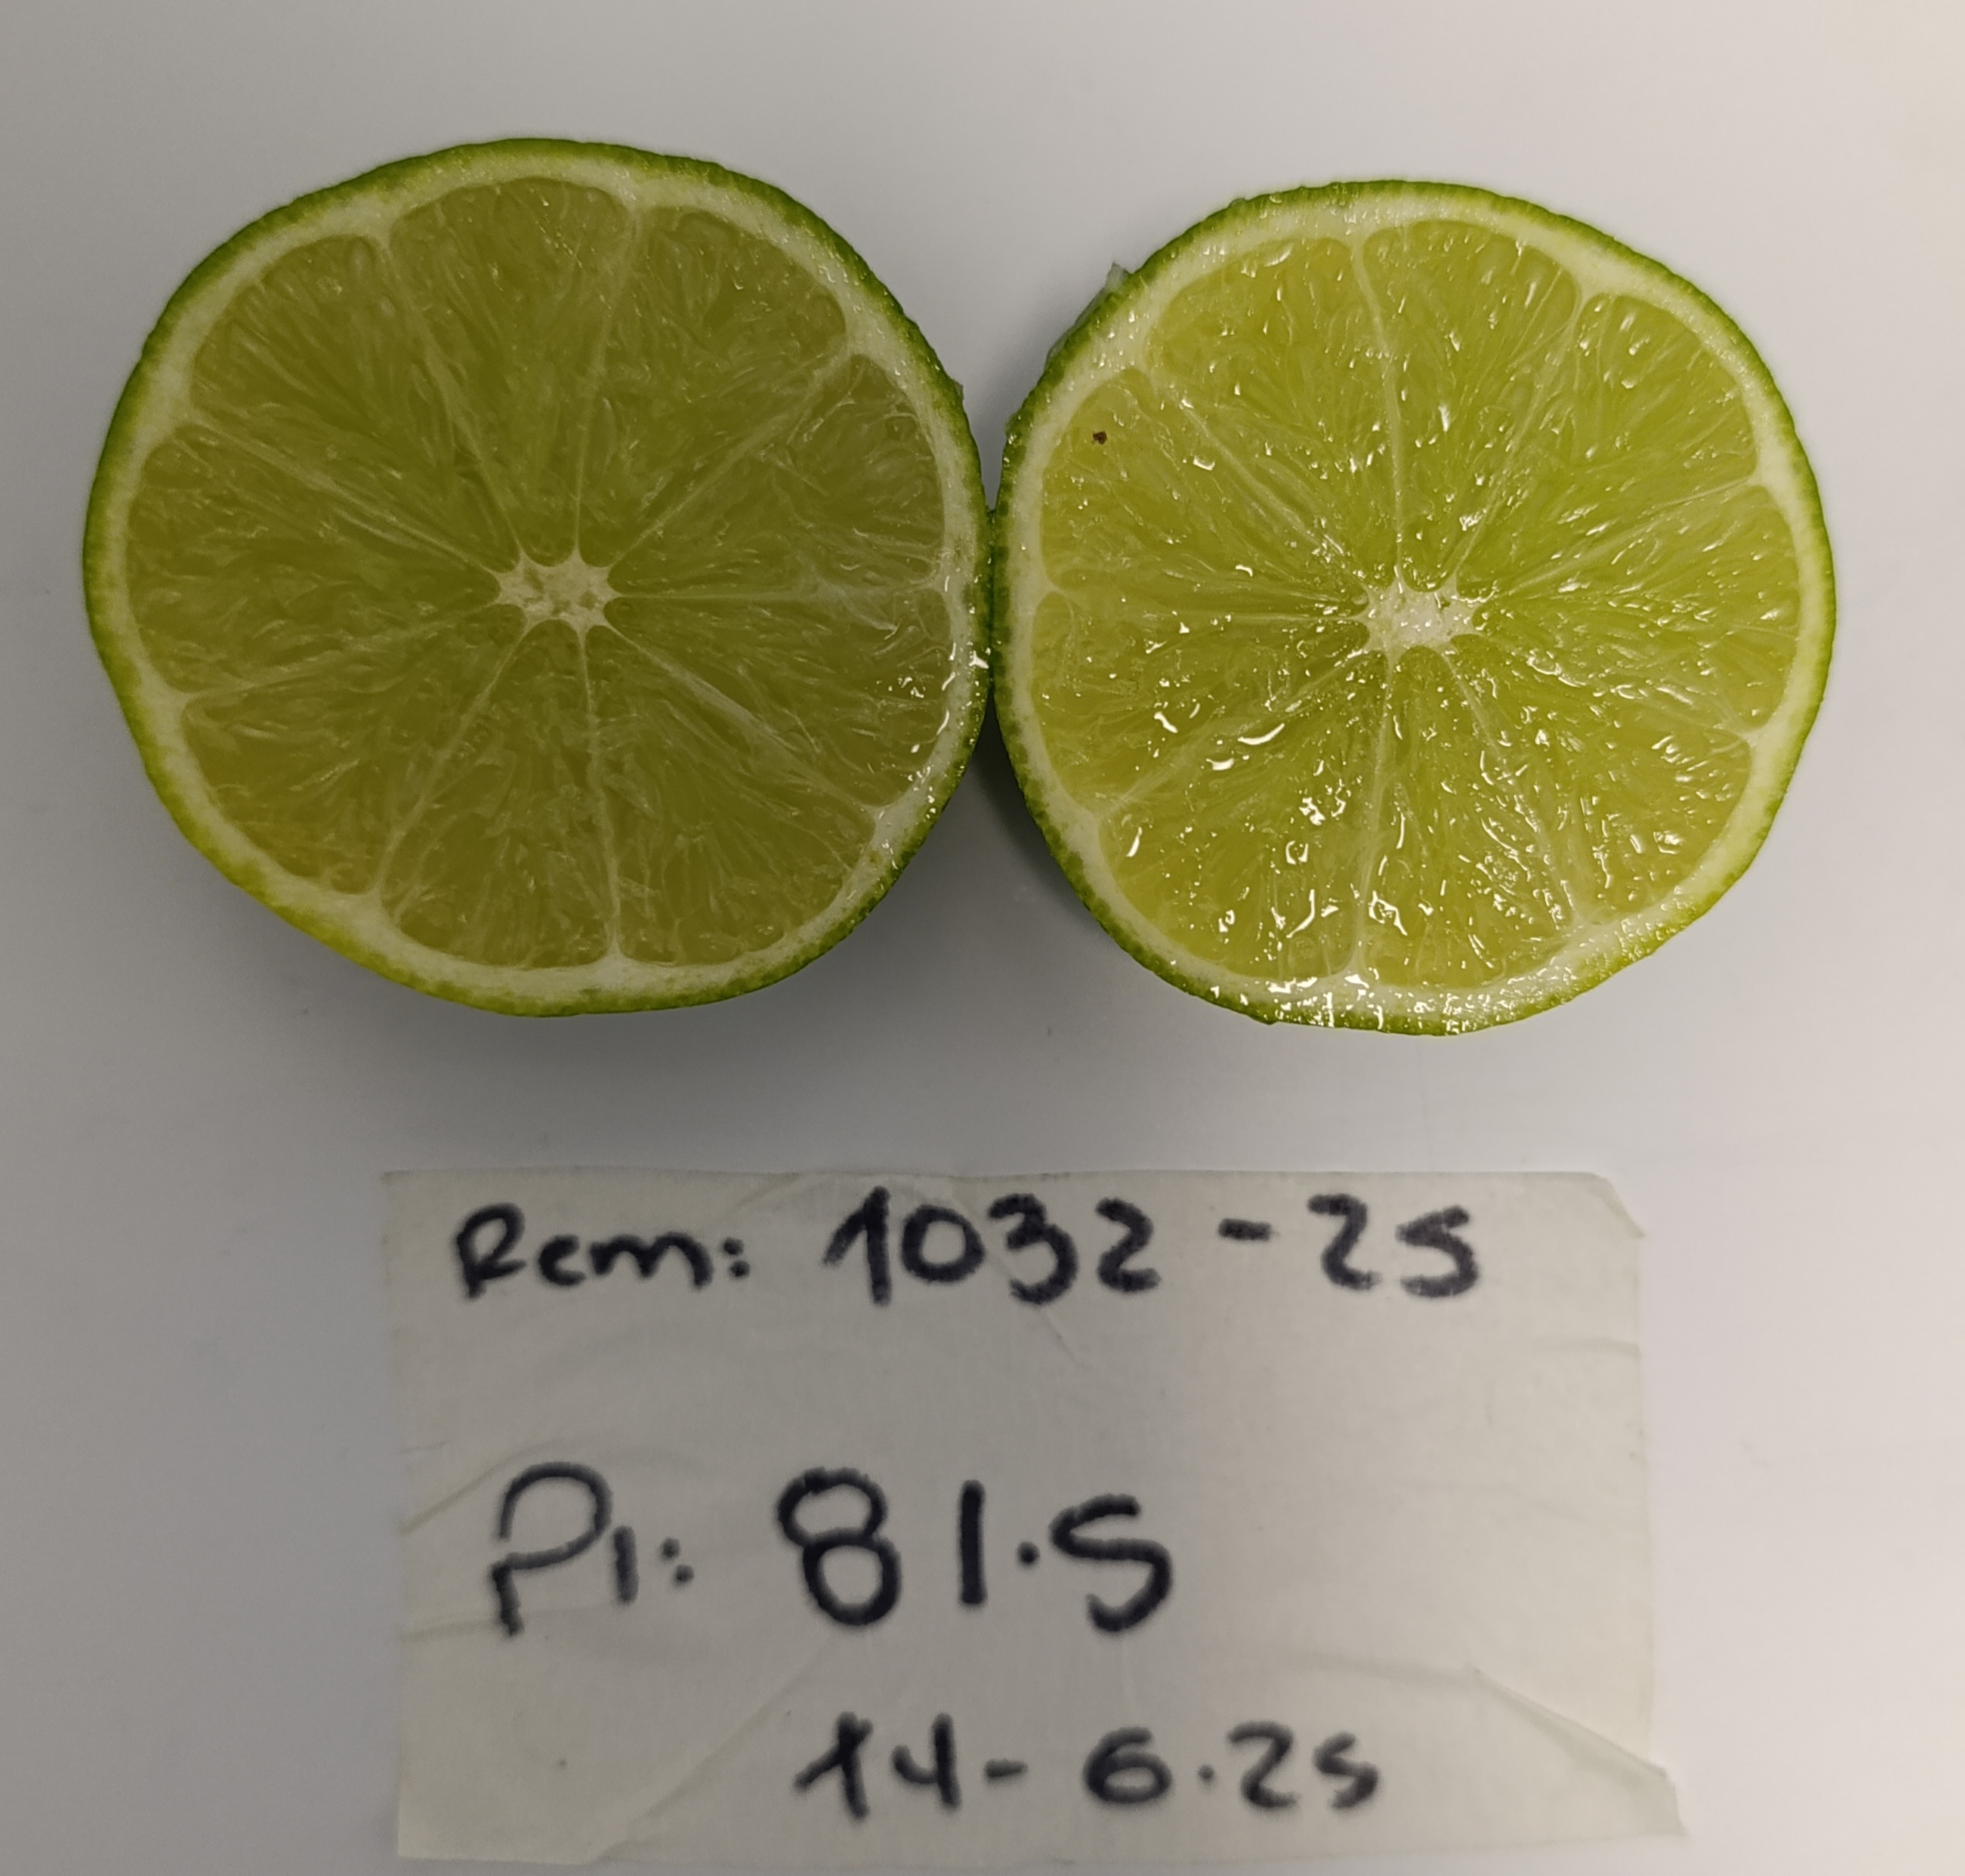 Rem: 1032-25
P1: 81.5
14-6.25